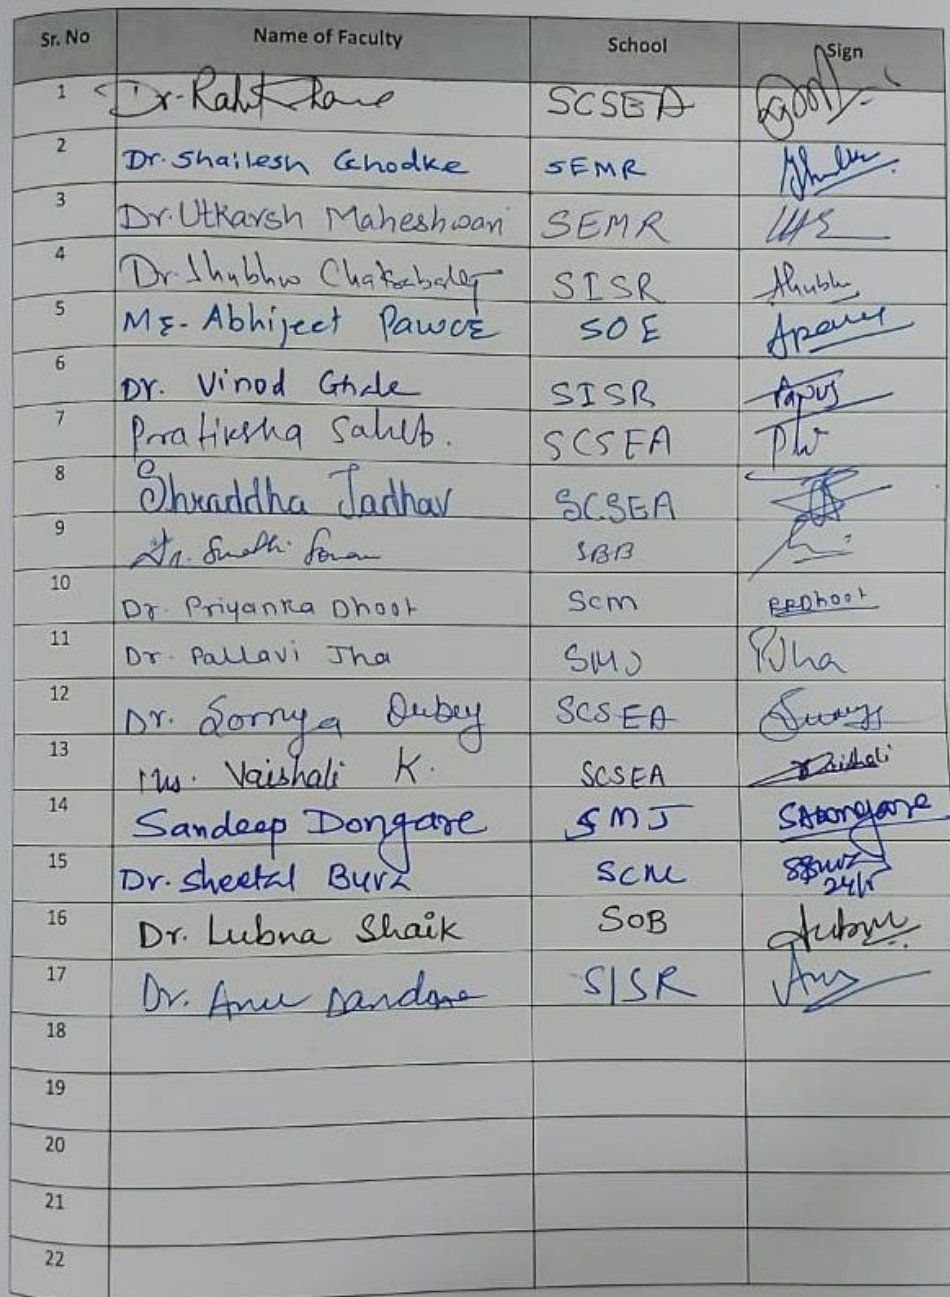 Sr. No Name of Faculty School Sign
1 Dr. Rahul Khane SCSEA
2 Dr. Shailesh Ghodke SEMR
3 Dr. Utkarsh Maheshwari SEMR
4 Dr. Shubhro Chakrabarty SISR Shubh
5 Mr. Abhijeet Pawar SOE Apawar
6 Dr. Vinod Ghale SISR
7 Pratiksha SCSEA
8 Shraddha Jadhav SCSEA
9 Dr. SBB
10 Dr. Priyanka Dhoot SCM PRDhoot
11 Dr. Pallavi Jha SMJ PJha
12 Dr. Somya Dubey SCSEA
13 Ms. Vaishali K. SCSEA Vaishali
14 Sandeep Dongare SMJ SADongare
15 Dr. Sheetal Burz SCM
16 Dr. Lubna Shaik SOB Lubna
17 Dr. Anu Dandona SISR Anu
18
19
20
21
22